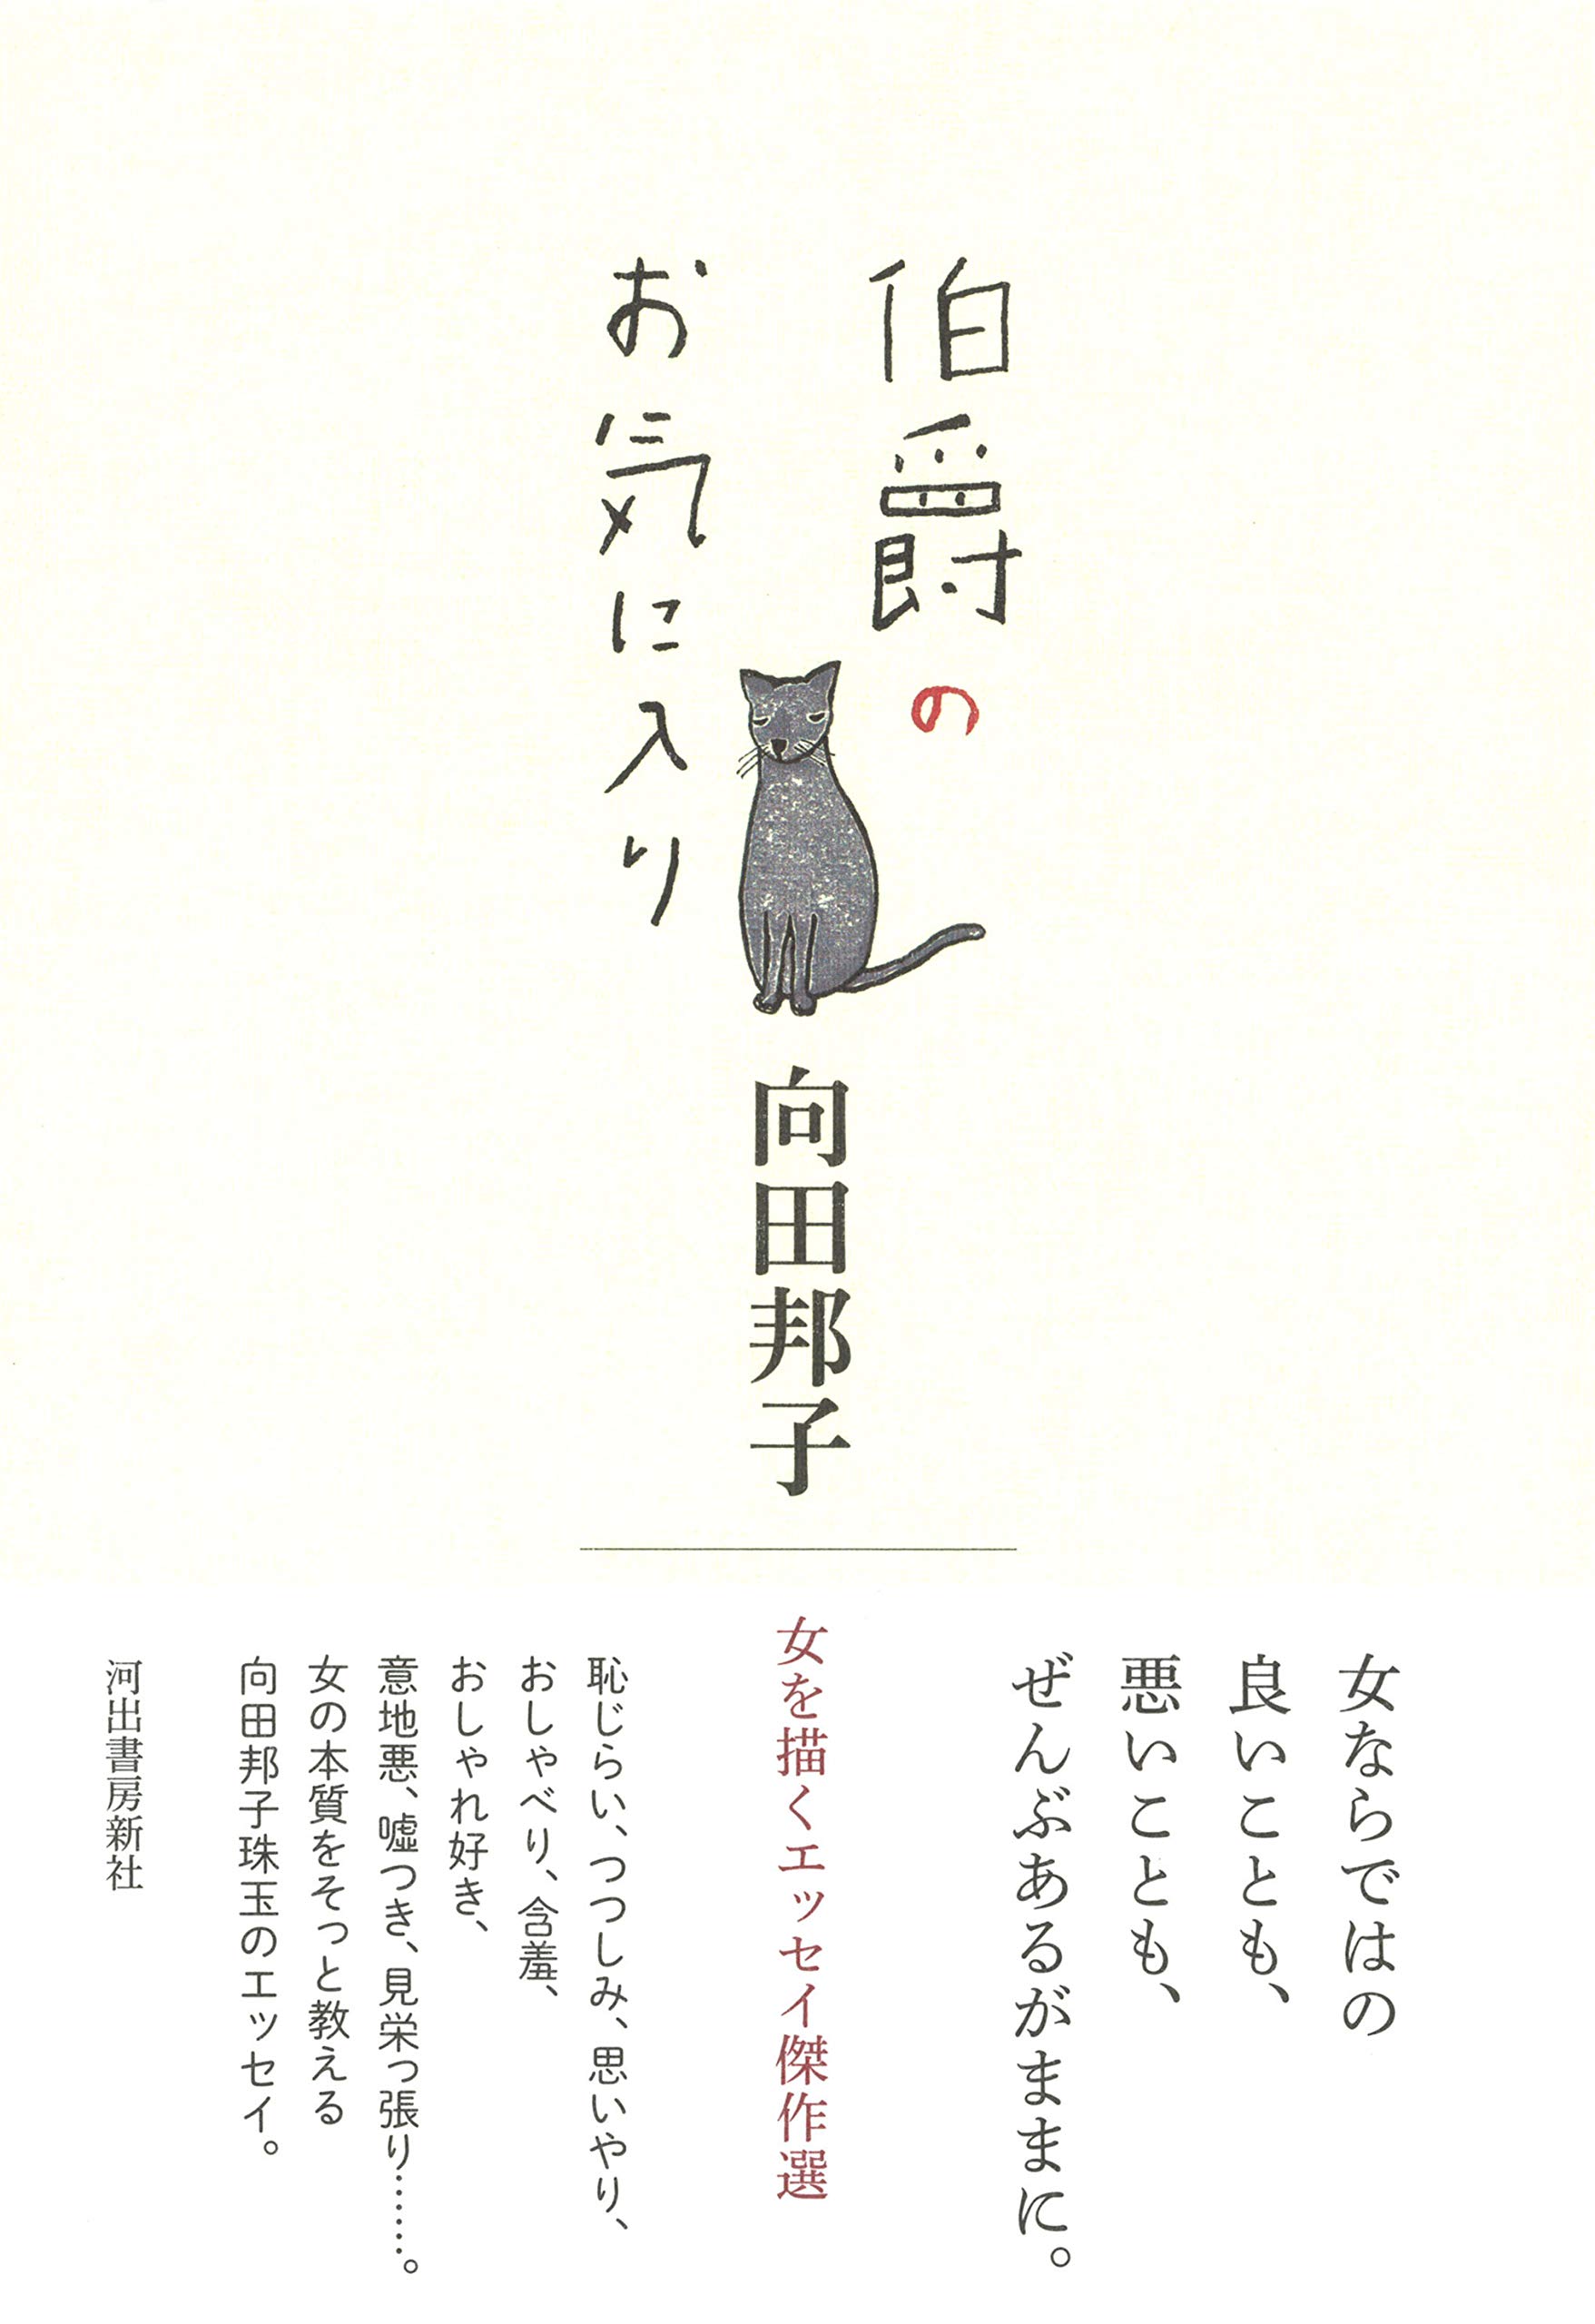 伯爵の
お気に入り
向田邦子
女ならではの
良いことも、
悪いことも、
ぜんぶあるがままに。
女を描くエッセイ傑作選
恥じらい、つつしみ、思いやり、
おしゃべり、含羞、
おしゃれ好き、
意地悪、嘘つき、見栄っ張り……。
女の本質をそっと教える
向田邦子珠玉のエッセイ。
河出書房新社